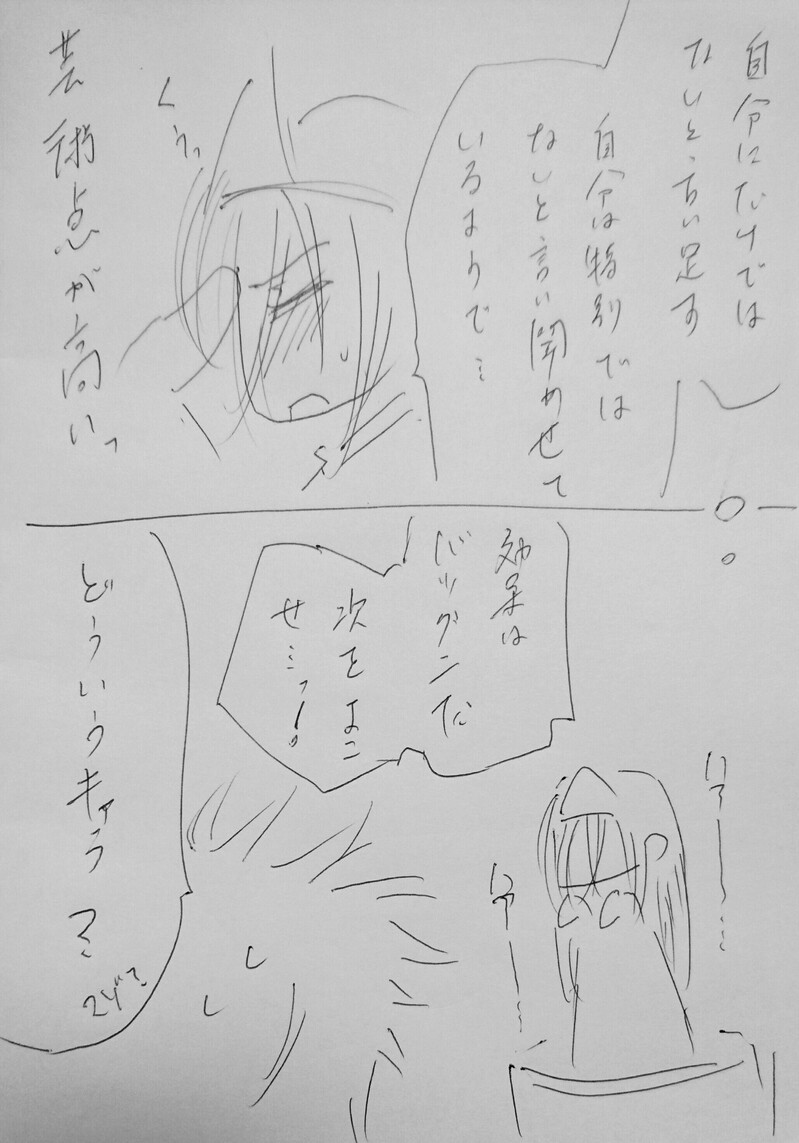 自分にだけでは
ないと、言い足す
自分は特別では
ないと言い聞かせて
いるようで…
くぅっ
芸術点が高いっ
効果は
バツグンだ
次をよこ
せ…っ!
ハァー…
ハァー…
どういうキャラ